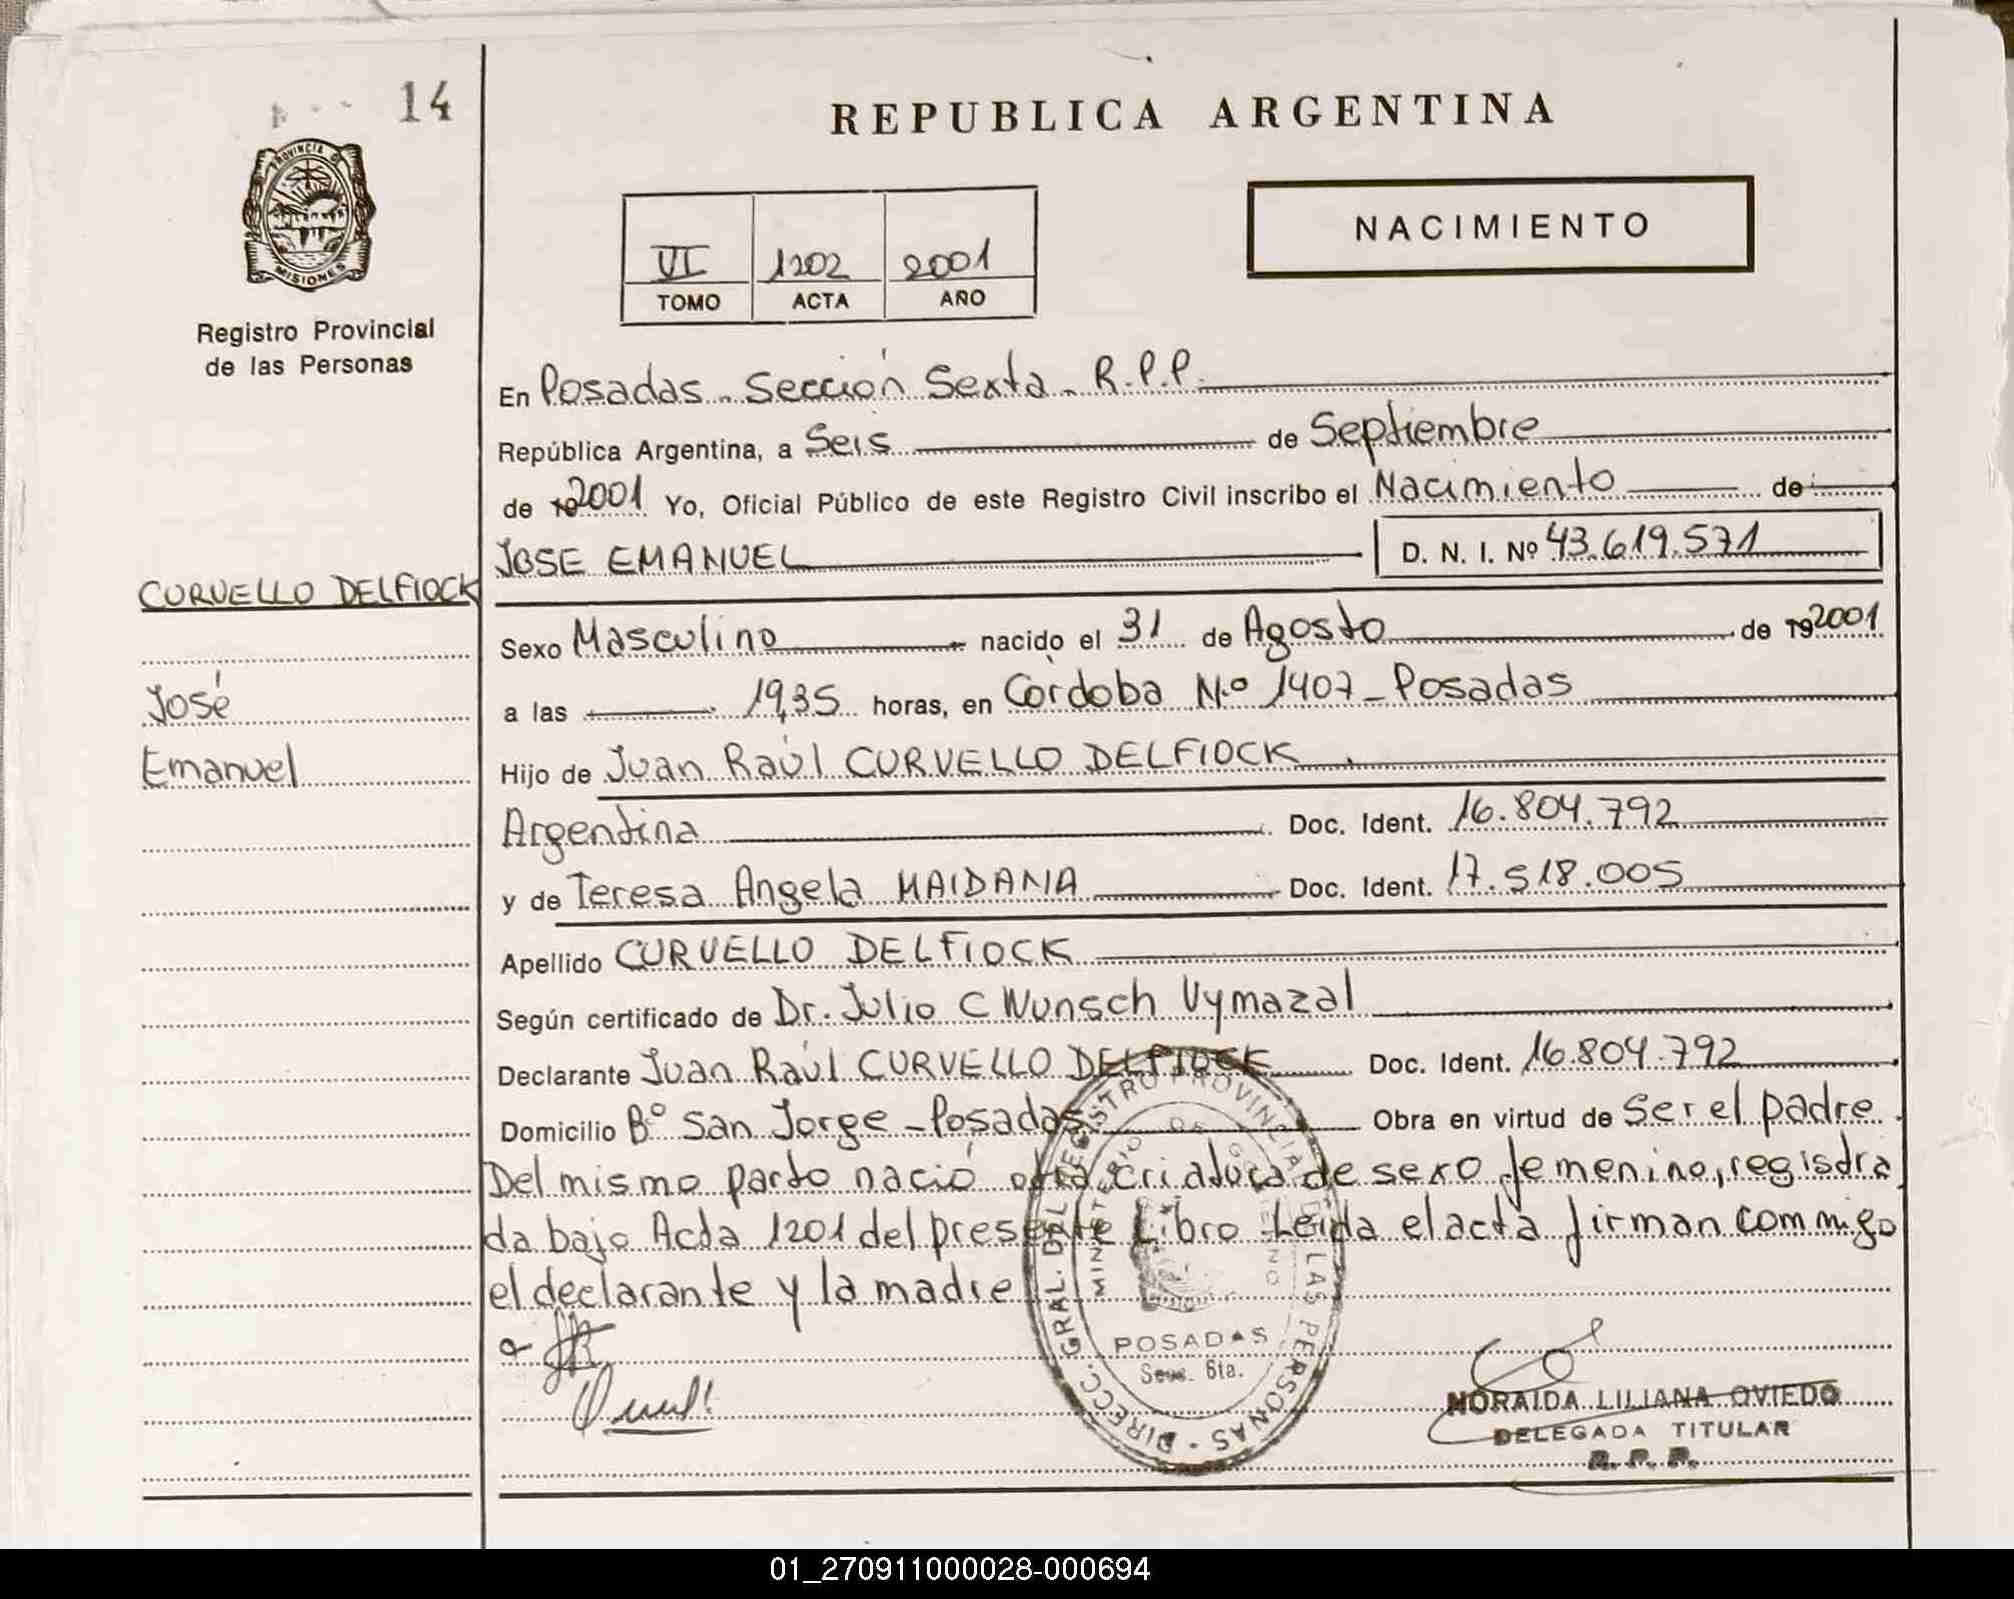 14
PROVINCIA DE
MISIONES
Registro Provincial
de las Personas
CURVELLO DELFIOCK
José
Emanuel
REPUBLICA ARGENTINA
NACIMIENTO
VI 1202 2001
TOMO ACTA AÑO
En Posadas - Sección Sexta - R.P.P.
República Argentina, a Seis de Septiembre
de 192001 Yo, Oficial Público de este Registro Civil inscribo el Nacimiento de
JOSE EMANUEL D. N. I. Nº 43.619.571
Sexo Masculino nacido el 31 de Agosto de 192001
a las 19,35 horas, en Córdoba N.º 1407 - Posadas
Hijo de Juan Raúl CURVELLO DELFIOCK
Argentina Doc. Ident. 16.804.792
y de Teresa Angela MAIDANA Doc. Ident. 17.518.005
Apellido CURVELLO DELFIOCK
Según certificado de Dr. Julio C Wunsch Vymazal
Declarante Juan Raúl CURVELLO DELFIOCK Doc. Ident. 16.804.792
Domicilio Bº San Jorge - Posadas Obra en virtud de Ser el padre
Del mismo parto nació otra criatura de sexo femenino, registra
da bajo Acta 1201 del presente Libro Leída el acta firman commigo
el declarante y la madre
DIRECC. GRAL. DEL REGISTRO PROVINCIAL DE LAS PERSONAS
MINISTERIO DE GOBIERNO
POSADAS
Secc. 6ta.
NORAIDA LILIANA OVIEDO
DELEGADA TITULAR
R. P. P.
01_270911000028-000694